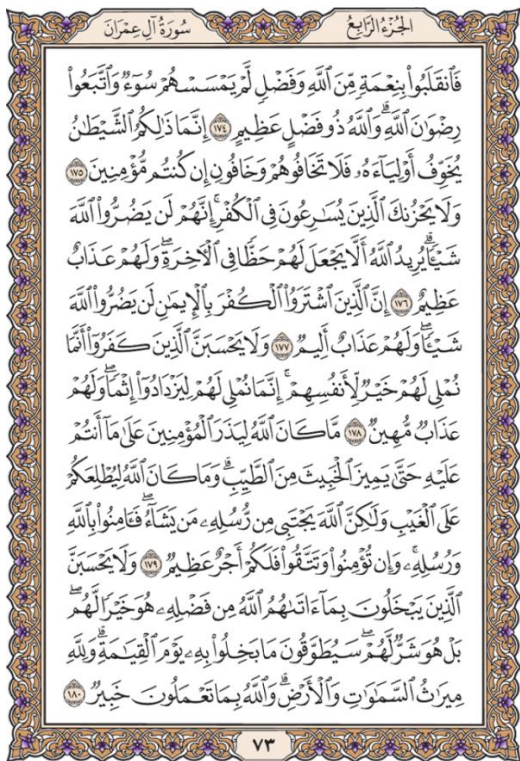 الجُزْءُ الرَّابِعُ سُورَةُ آلِ عِمْرَانَ
فَٱنقَلَبُوا۟ بِنِعْمَةٍ مِّنَ ٱللَّهِ وَفَضْلٍ لَّمْ يَمْسَسْهُمْ سُوٓءٌ وَٱتَّبَعُوا۟
رِضْوَٰنَ ٱللَّهِ ۗ وَٱللَّهُ ذُو فَضْلٍ عَظِيمٍ ١٧٤ إِنَّمَا ذَٰلِكُمُ ٱلشَّيْطَٰنُ
يُخَوِّفُ أَوْلِيَآءَهُۥ فَلَا تَخَافُوهُمْ وَخَافُونِ إِن كُنتُم مُّؤْمِنِينَ ١٧٥
وَلَا يَحْزُنكَ ٱلَّذِينَ يُسَٰرِعُونَ فِى ٱلْكُفْرِ ۚ إِنَّهُمْ لَن يَضُرُّوا۟ ٱللَّهَ
شَيْـًٔا ۗ يُرِيدُ ٱللَّهُ أَلَّا يَجْعَلَ لَهُمْ حَظًّا فِى ٱلْـَٔاخِرَةِ ۖ وَلَهُمْ عَذَابٌ
عَظِيمٌ ١٧٦ إِنَّ ٱلَّذِينَ ٱشْتَرَوُا۟ ٱلْكُفْرَ بِٱلْإِيمَٰنِ لَن يَضُرُّوا۟ ٱللَّهَ
شَيْـًٔا ۖ وَلَهُمْ عَذَابٌ أَلِيمٌ ١٧٧ وَلَا يَحْسَبَنَّ ٱلَّذِينَ كَفَرُوٓا۟ أَنَّمَا
نُمْلِى لَهُمْ خَيْرٌ لِّأَنفُسِهِمْ ۚ إِنَّمَا نُمْلِى لَهُمْ لِيَزْدَادُوٓا۟ إِثْمًا ۖ وَلَهُمْ
عَذَابٌ مُّهِينٌ ١٧٨ مَّا كَانَ ٱللَّهُ لِيَذَرَ ٱلْمُؤْمِنِينَ عَلَىٰ مَآ أَنتُمْ
عَلَيْهِ حَتَّىٰ يَمِيزَ ٱلْخَبِيثَ مِنَ ٱلطَّيِّبِ ۗ وَمَا كَانَ ٱللَّهُ لِيُطْلِعَكُمْ
عَلَى ٱلْغَيْبِ وَلَٰكِنَّ ٱللَّهَ يَجْتَبِى مِن رُّسُلِهِۦ مَن يَشَآءُ ۖ فَـَٔامِنُوا۟ بِٱللَّهِ
وَرُسُلِهِۦ ۚ وَإِن تُؤْمِنُوا۟ وَتَتَّقُوا۟ فَلَكُمْ أَجْرٌ عَظِيمٌ ١٧٩ وَلَا يَحْسَبَنَّ
ٱلَّذِينَ يَبْخَلُونَ بِمَآ ءَاتَىٰهُمُ ٱللَّهُ مِن فَضْلِهِۦ هُوَ خَيْرًا لَّهُم ۖ
بَلْ هُوَ شَرٌّ لَّهُمْ ۖ سَيُطَوَّقُونَ مَا بَخِلُوا۟ بِهِۦ يَوْمَ ٱلْقِيَٰمَةِ ۗ وَلِلَّهِ
مِيرَٰثُ ٱلسَّمَٰوَٰتِ وَٱلْأَرْضِ ۗ وَٱللَّهُ بِمَا تَعْمَلُونَ خَبِيرٌ ١٨٠
٧٣